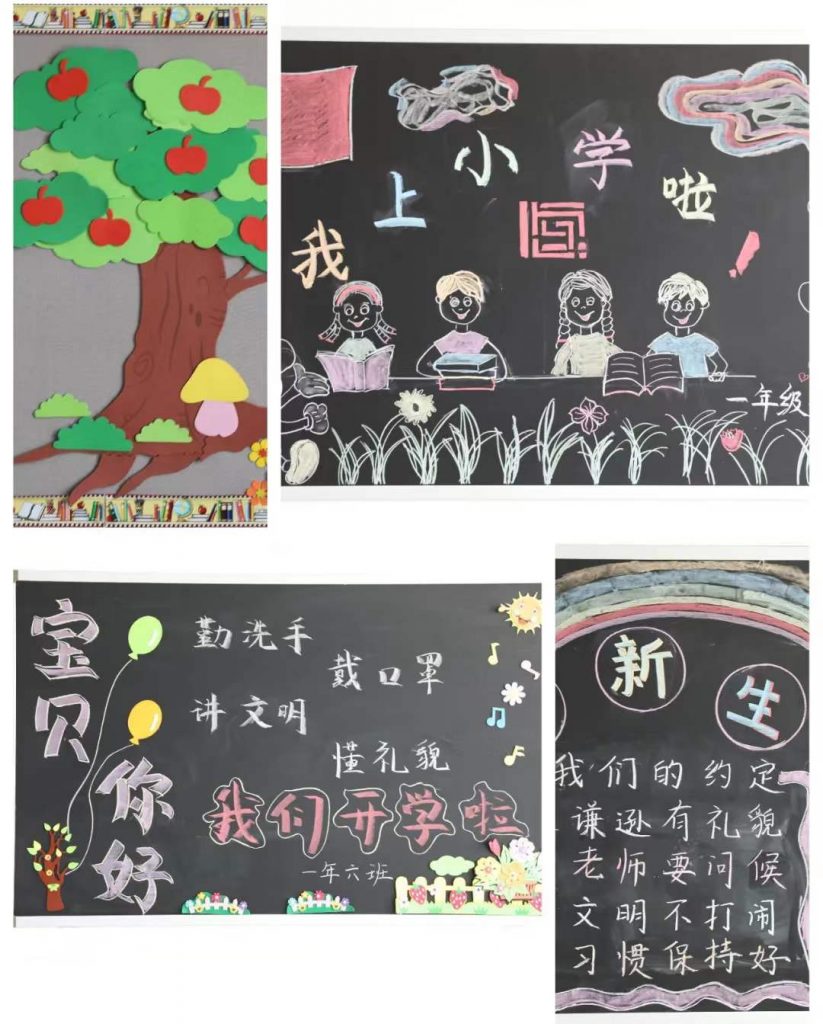 我上小学啦！
一年级
宝贝
你好
勤洗手
戴口罩
讲文明
懂礼貌
我们开学啦
一年六班
新生
我们的约定
谦逊有礼貌
老师要问候
文明不打闹
习惯保持好